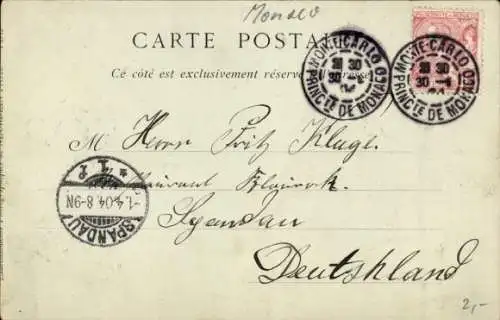 Monaco
CARTE POSTALE
Ce côté est exclusivement réservé
MONTE-CARLO
30
PRINCTE DE MONACO
MONTE-CARLO
30
PRINCTE DE MONACO
M Herrn Fritz Kluge
Restaurant
Spandau
Deutschland
SPANDAU
-1.4.04.8-9N
* 1 f
2,-